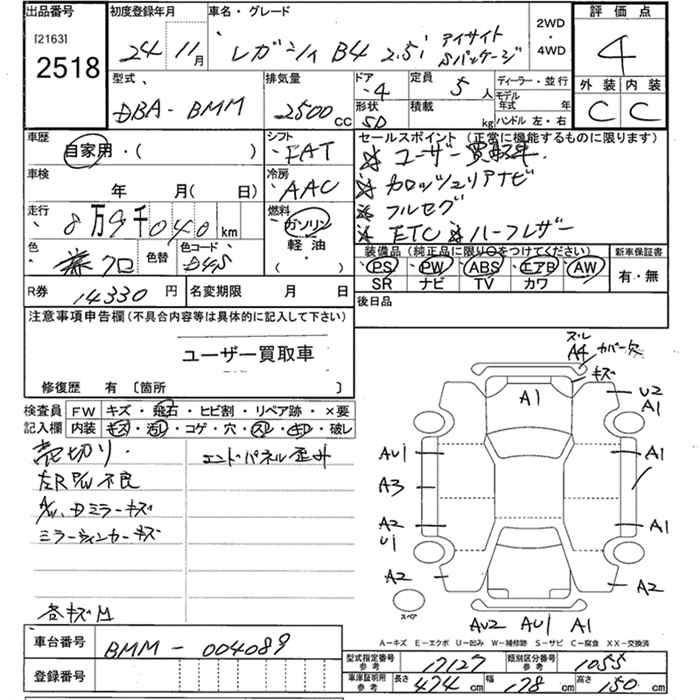 出品番号 初度登録年月 車名・グレード 2WD・4WD 評価点
[2163]
2518
24 11月 レガシィ B4 2.5i アイサイト Sパッケージ 4
型式 排気量 ドア 定員 ディーラー・並行 外装 内装
DBA-BMM 2500 CC 4 5人 モデル年式 年
形状 積載 kg ハンドル 左・右 C C
SD
車歴 自家用・( ) シフト FAT セールスポイント (正常に機能するものに限ります)
☆ユーザー買取車.
車検 年 月( 日) 冷房 AAC ☆カロッツェリアナビ
☆フルセグ
走行 8万9千040km 燃料 ガソリン・軽油・( ) ☆ETC ☆ハーフレザー
色 クロ 色替 色コード D4S 装備品 (純正品に限り○をつけてください) 新車保証書
PS PW ABS エアB AW 有・無
SR ナビ TV カワ
R券 14330円 名変期限 月 日 後日品
注意事項申告欄(不具合内容等は具体的に記入して下さい)
ユーザー買取車
修復歴 有 〔箇所 〕
検査員記入欄 FW キズ・飛石・ヒビ割・リペア跡・×要
内装 キズ・汚レ・コゲ・穴・スレ・キレ・破レ
売切り. エンドパネル歪み
左R P/W 不良
A/W、Dミラーキズ
ミラーウィンカーキズ
各キズM
ズレ
A4 カバー欠
キズ
A1 U2
A1
AU1 A1
A3
A2 A1
U1
A2 A2
スペア
AU2 AU1 A1
A-キズ E-エクボ U-凹み W-補修跡 S-サビ C-腐食 XX-交換済
車台番号 BMM-004089
登録番号
型式指定番号 参考 17127 類別区分番号 参考 1055
車庫証明用 参考 長さ 474cm 幅 178cm 高さ 150cm